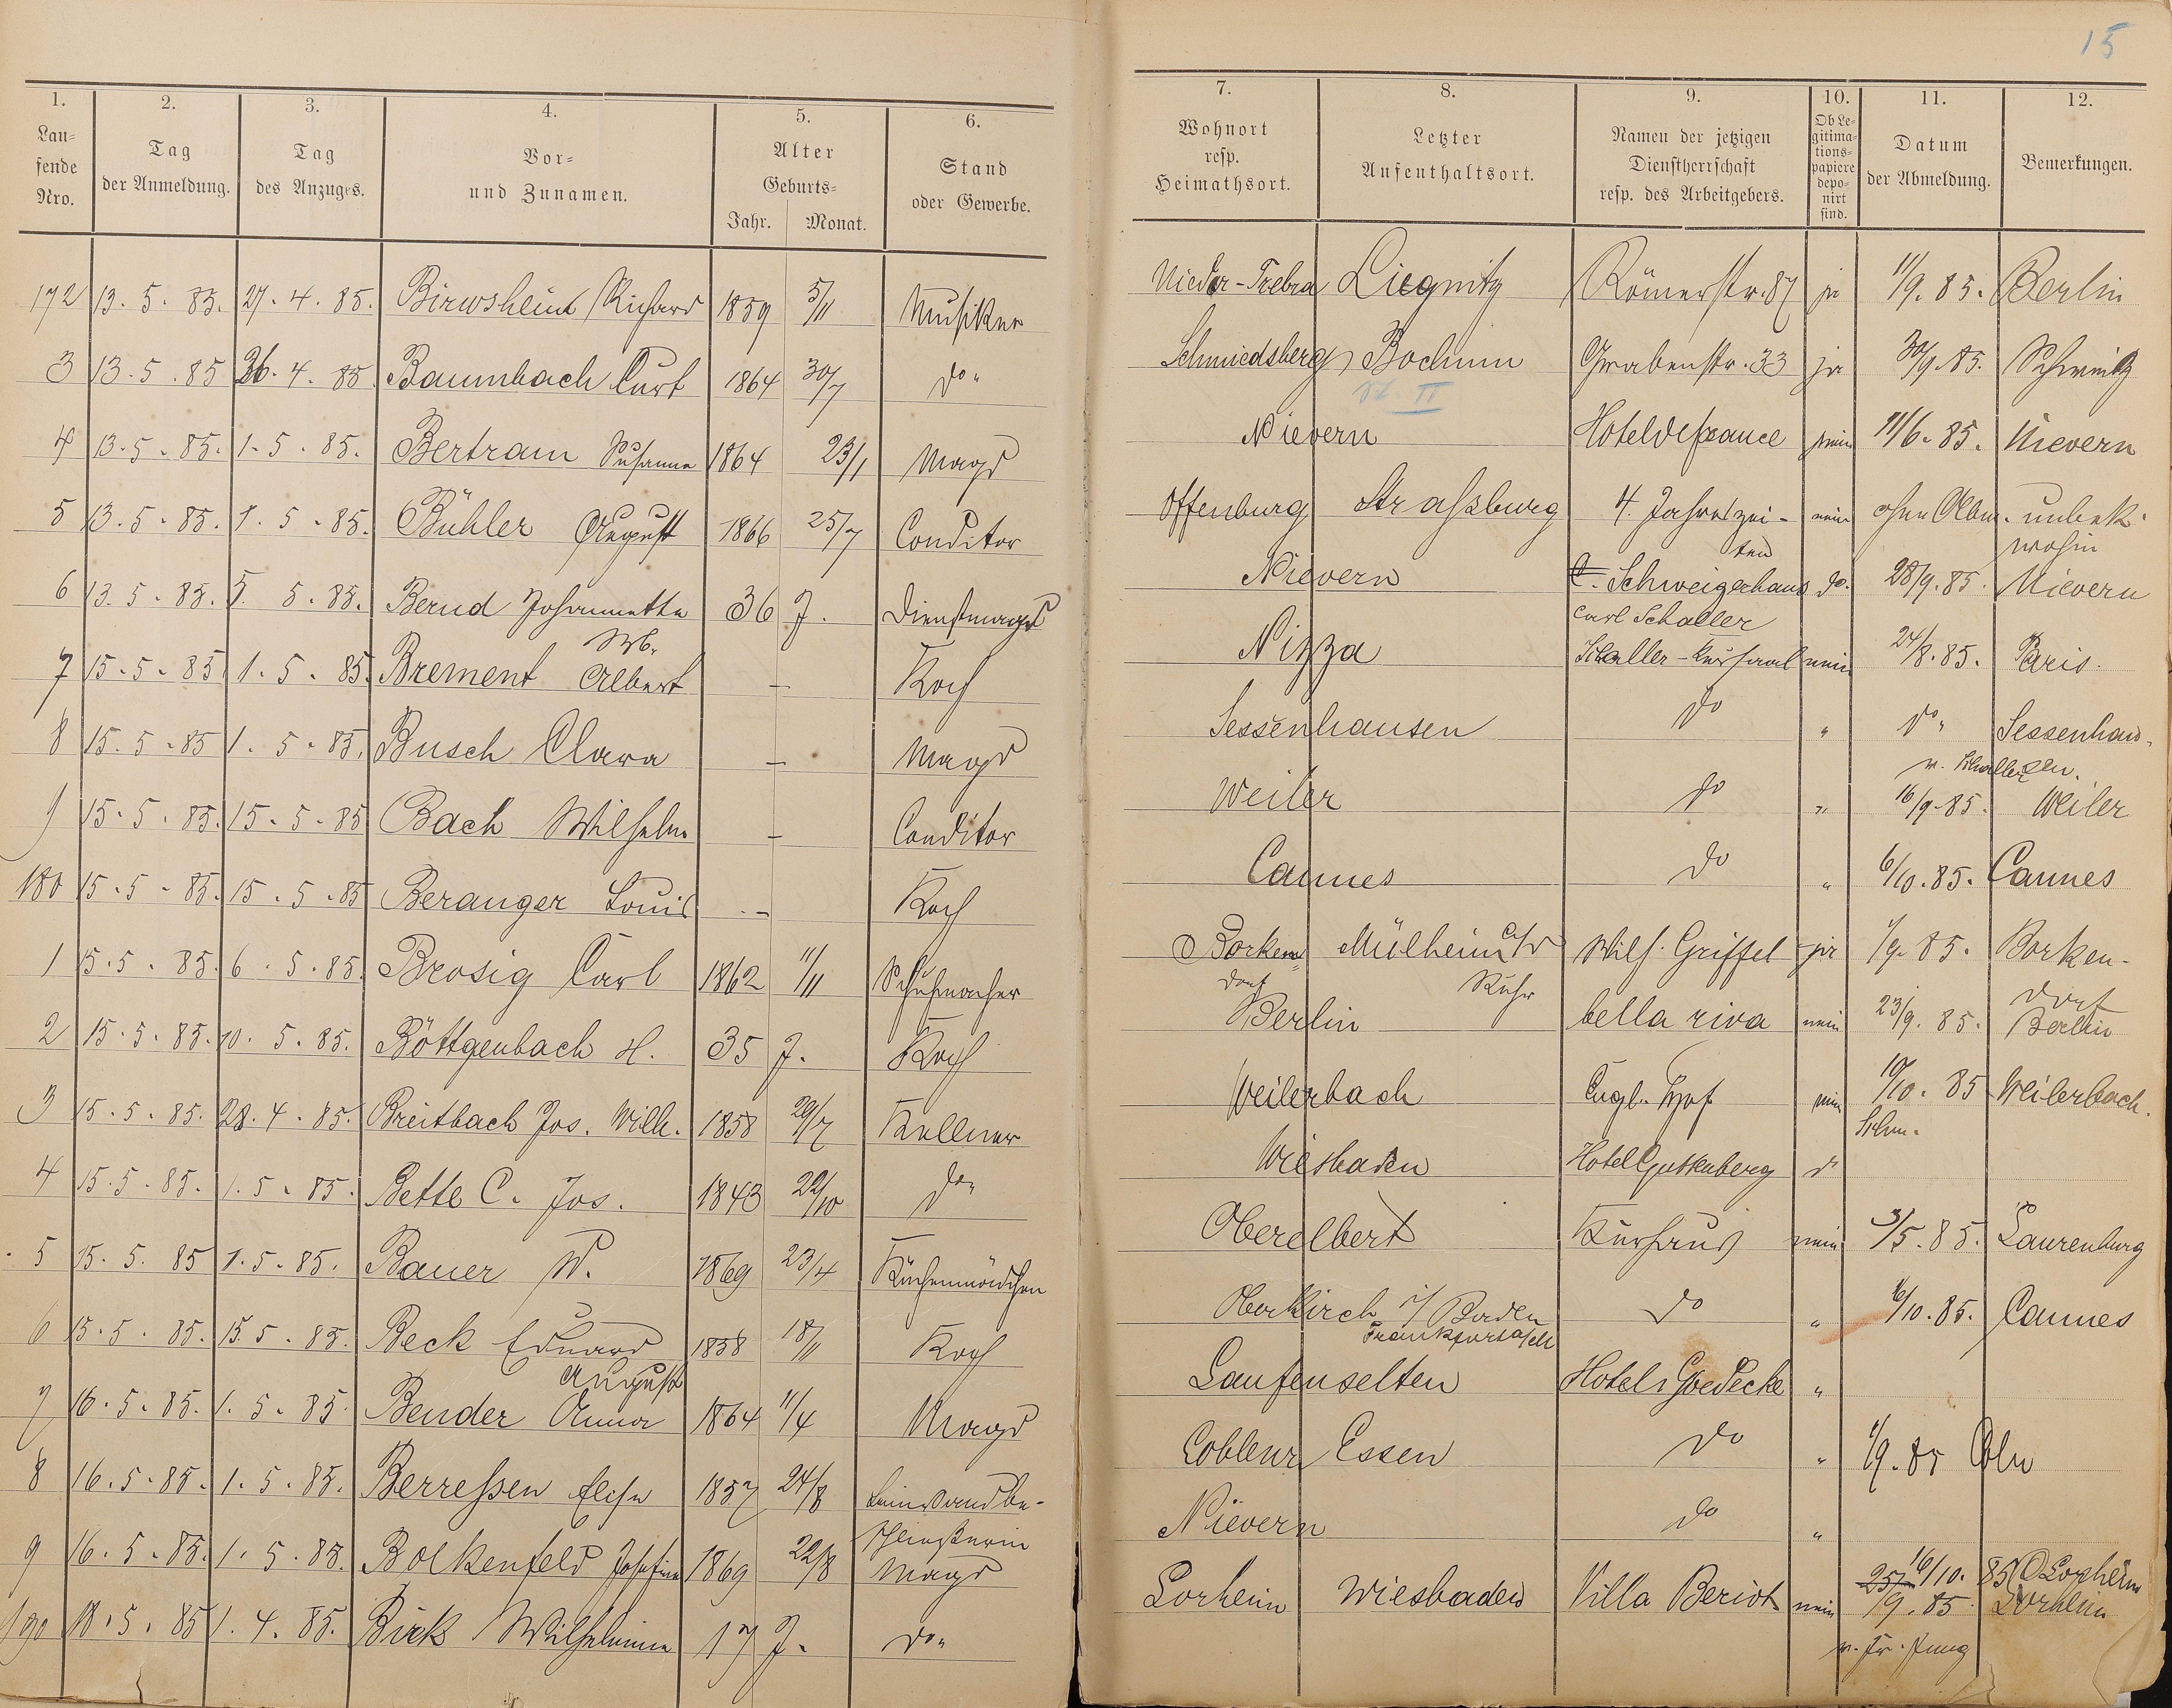 15
1. 2. 3. 4. 5. 6. 7. 8. 9. 10. 11. 12.
Laufende Nro. Tag der Anmeldung. Tag des Anzuges. Vor- und Zunamen. Alter Geburts- Jahr. Monat. Stand oder Gewerbe. Wohnort resp. Heimathsort. Letzter Aufenthaltsort. Namen der jetzigen Dienstherrschaft resp. des Arbeitgebers. Ob Legitimationspapiere deponirt sind. Datum der Abmeldung. Bemerkungen.
172 13. 5. 85. 27. 4. 85. Richard 1859 5/11 Musiker Nieder-Trebra Liegnitz Römerstr. 87 ja 1/9. 85. Berlin
3 13. 5. 85 26. 4. 85 Baumbach Curt 1864 30/7 do" Schmiedsberg Bochum Grabenstr. 33 ja 30/9. 85.
II
4 13. 5. 85. 1. 5. 85. Bertram Susanna 1864 23/1 Magd Nievern Hotel de france nein 11/6. 85. Nievern
5 13. 5. 85. 1. 5. 85. Bühler August 1866 25/7 Conditor Offenburg Straßburg 4 Jahreszei- nein ohne Abm. unbek.
ten wohin
6 13. 5. 85. 5. 85. Bernd Johannette 36 J. Dienstmagd Nievern Schweizerhaus do. 28/9. 85. Nievern
Wb. Carl Schaller
7 15. 5. 85 1. 5. 85 Brement Albert – Koch Nizza Schaller-Kursaal nein 24/8. 85. Paris.
8 15. 5. 85 1. 5. 85. Busch Clara – Magd Sessenhausen do " do" Sessenhau-
v. Schaller sen.
9 15. 5. 85. 15. 5. 85 Bach Wilhelm – Conditor Weiler do " 16/9. 85. Weiler
180 15. 5. 85. 15. 5. 85 Beranger Louis – Koch Cannes do " 6/10. 85. Cannes
1 15. 5. 85. 6. 5. 85 Brosig Carl 1862 11/11 Schuhmacher Borken- Mülheim a/d Wilh. Griffel ja 1/9. 85. Borken-
dorf Ruhr dorf
2 15. 5. 85. 10. 5. 85. Böttgenbach H. 35 J. Koch Berlin bella riva nein 23/9. 85. Berlin
3 15. 5. 85. 28. 4. 85. Breitbach Jos. Wilh. 1858 29/7 Kellner Weilerbach Engl. Hof nein 10/10. 85 Weilerbach.
4 15. 5. 85. 1. 5. 85. Bette C. Jos. 1843 22/10 do" Wiesbaden Hotel Guttenberg do
5 15. 5. 85 1. 5. 85. Bauer W. 1869 23/4 Küchenmädchen Oberelbert Kurhaus nein 3/5. 85. Laurenburg
6 15. 5. 85. 15. 5. 85. Beck Eduard 1858 18/11 Koch Oberkirch i/ Baden do " 6/10. 85. Cannes
August Frankfurt a/M
7 16. 5. 85. 1. 5. 85. Bender Anna 1864 11/4 Magd Laufenselten Hotel Goedecke "
8 16. 5. 85. 1. 5. 85. Berreßen Elise 1857 24/8 Leinwandbe- Coblenz Essen do " 1/9. 85 Cöln
schließerin
9 16. 5. 85. 1. 5. 85. Bolkenfeld Josefine 1869 22/8 Magd Nievern do "
190 18. 5. 85 1. 4. 85. Birk Wilhelmine 17 J. do" Lorheim Wiesbaden Villa Beriot nein 16/10. 85 Lorheim
1/9. 85 Lorheim
v. Fr. Jung